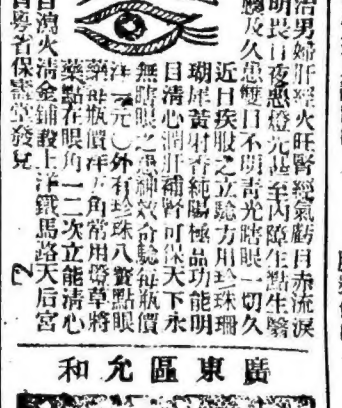 治男婦肝經火旺腎經氣虧目赤流淚
明畏日夜惡燈光甚至內障生點生翳
及久患雙目不明靑光瞎眼一切久
近日疾服之立驗方用珍珠珊
瑚犀黃射香純陽極品功能明
目清心潤肝補腎可保天下永
無瞎眼之患神效奇驗每瓶價
洋一元〇外有珍珠八寶點眼
藥每瓶價洋五角常用燈草將
藥點在眼角一二次立能清心
瀉火清金鋪設上洋鐵馬路天后宮
粵省保壽堂發兌
72
廣東區允和